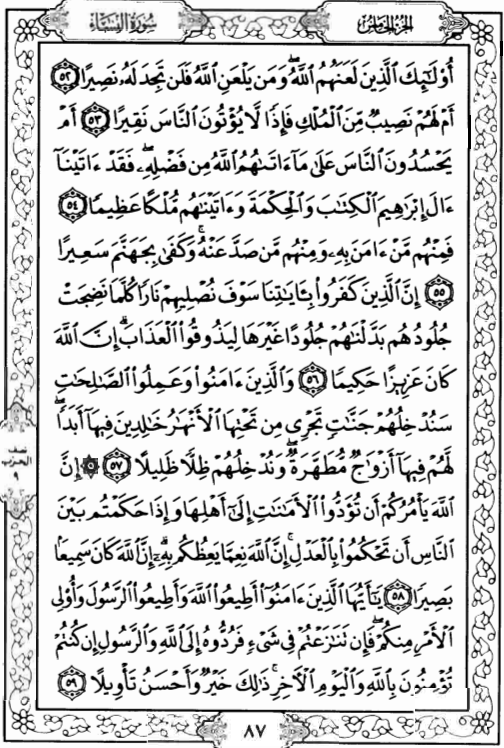 الجزء الخامس
سورة النساء
أُوْلَٰٓئِكَ ٱلَّذِينَ لَعَنَهُمُ ٱللَّهُۖ وَمَن يَلْعَنِ ٱللَّهُ فَلَن تَجِدَ لَهُۥ نَصِيرًا ٥٢
أَمْ لَهُمْ نَصِيبٌ مِّنَ ٱلْمُلْكِ فَإِذًا لَّا يُؤْتُونَ ٱلنَّاسَ نَقِيرًا ٥٣ أَمْ
يَحْسُدُونَ ٱلنَّاسَ عَلَىٰ مَآ ءَاتَىٰهُمُ ٱللَّهُ مِن فَضْلِهِۦۖ فَقَدْ ءَاتَيْنَآ
ءَالَ إِبْرَٰهِيمَ ٱلْكِتَٰبَ وَٱلْحِكْمَةَ وَءَاتَيْنَٰهُم مُّلْكًا عَظِيمًا ٥٤
فَمِنْهُم مَّنْ ءَامَنَ بِهِۦ وَمِنْهُم مَّن صَدَّ عَنْهُۚ وَكَفَىٰ بِجَهَنَّمَ سَعِيرًا
٥٥ إِنَّ ٱلَّذِينَ كَفَرُواْ بِـَٔايَٰتِنَا سَوْفَ نُصْلِيهِمْ نَارًا كُلَّمَا نَضِجَتْ
جُلُودُهُم بَدَّلْنَٰهُمْ جُلُودًا غَيْرَهَا لِيَذُوقُواْ ٱلْعَذَابَۗ إِنَّ ٱللَّهَ
كَانَ عَزِيزًا حَكِيمًا ٥٦ وَٱلَّذِينَ ءَامَنُواْ وَعَمِلُواْ ٱلصَّٰلِحَٰتِ
سَنُدْخِلُهُمْ جَنَّٰتٍ تَجْرِى مِن تَحْتِهَا ٱلْأَنْهَٰرُ خَٰلِدِينَ فِيهَآ أَبَدًاۖ
لَّهُمْ فِيهَآ أَزْوَٰجٌ مُّطَهَّرَةٌۖ وَنُدْخِلُهُمْ ظِلًّا ظَلِيلًا ٥٧ ۞ إِنَّ
ٱللَّهَ يَأْمُرُكُمْ أَن تُؤَدُّواْ ٱلْأَمَٰنَٰتِ إِلَىٰٓ أَهْلِهَا وَإِذَا حَكَمْتُم بَيْنَ
ٱلنَّاسِ أَن تَحْكُمُواْ بِٱلْعَدْلِۚ إِنَّ ٱللَّهَ نِعِمَّا يَعِظُكُم بِهِۦٓۗ إِنَّ ٱللَّهَ كَانَ سَمِيعًۢا
بَصِيرًا ٥٨ يَٰٓأَيُّهَا ٱلَّذِينَ ءَامَنُوٓاْ أَطِيعُواْ ٱللَّهَ وَأَطِيعُواْ ٱلرَّسُولَ وَأُوْلِى
ٱلْأَمْرِ مِنكُمْۖ فَإِن تَنَٰزَعْتُمْ فِى شَىْءٍ فَرُدُّوهُ إِلَى ٱللَّهِ وَٱلرَّسُولِ إِن كُنتُمْ
تُؤْمِنُونَ بِٱللَّهِ وَٱلْيَوْمِ ٱلْأَخِرِۚ ذَٰلِكَ خَيْرٌ وَأَحْسَنُ تَأْوِيلًا ٥٩
نصف
الحزب
٩
٨٧